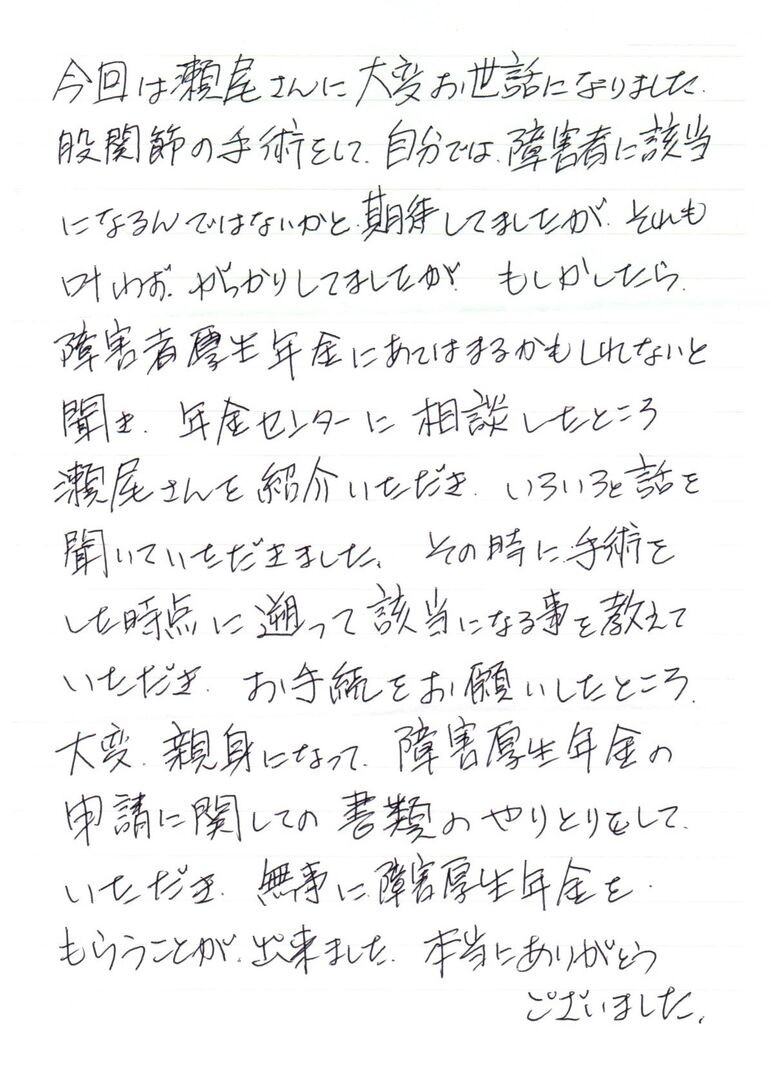 今回は瀬尾さんに大変お世話になりました.
股関節の手術をして.自分では.障害者に該当
になるんではないかと.期待してましたが.それも
叶わず.がっかりしてましたが もしかしたら.
障害者厚生年金にあてはまるかもしれないと
聞き.年金センターに相談したところ
瀬尾さんを紹介いただき.いろいろと話を
聞いていただきました.その時に手術を
した時点に遡って該当になる事を教えて
いただき.お手続をお願いしたところ.
大変.親身になって.障害厚生年金の
申請に関しての書類のやりとりをして.
いただき.無事に障害厚生年金を.
もらうことが.出来ました.本当にありがとう
ございました.